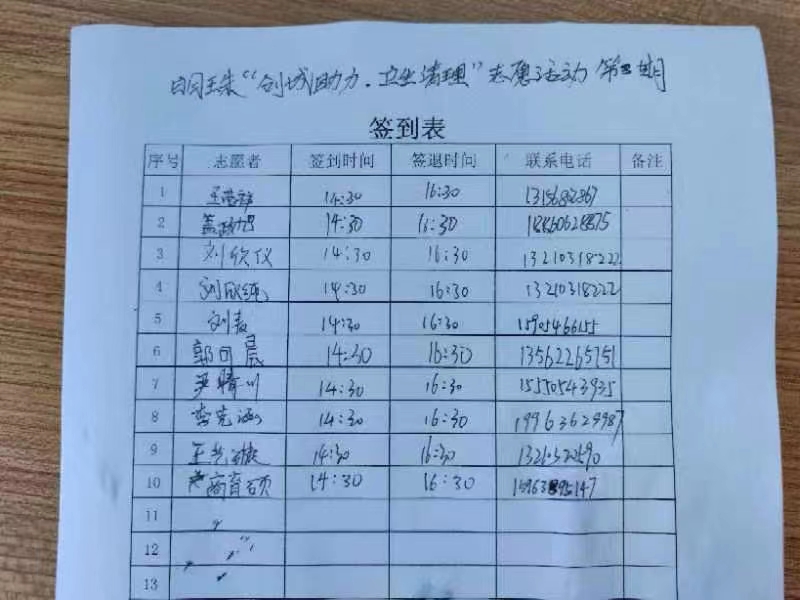 明珠“创城助力·卫生清理”志愿活动 第三期
签到表
序号 志愿者 签到时间 签退时间 联系电话 备注
1 14:30 16:30
2 14:30 16:30 18860628875
3 刘欣仪 14:30 16:30 13210318222
4 刘欣纯 14:30 16:30 13210318222
5 刘 14:30 16:30 15905466155
6 郭同晨 14:30 16:30 13562265751
7 14:30 16:30 15550543935
8 李克涵 14:30 16:30 19963629987
9 14:30 16:30
10 14:30 16:30
11
12
13